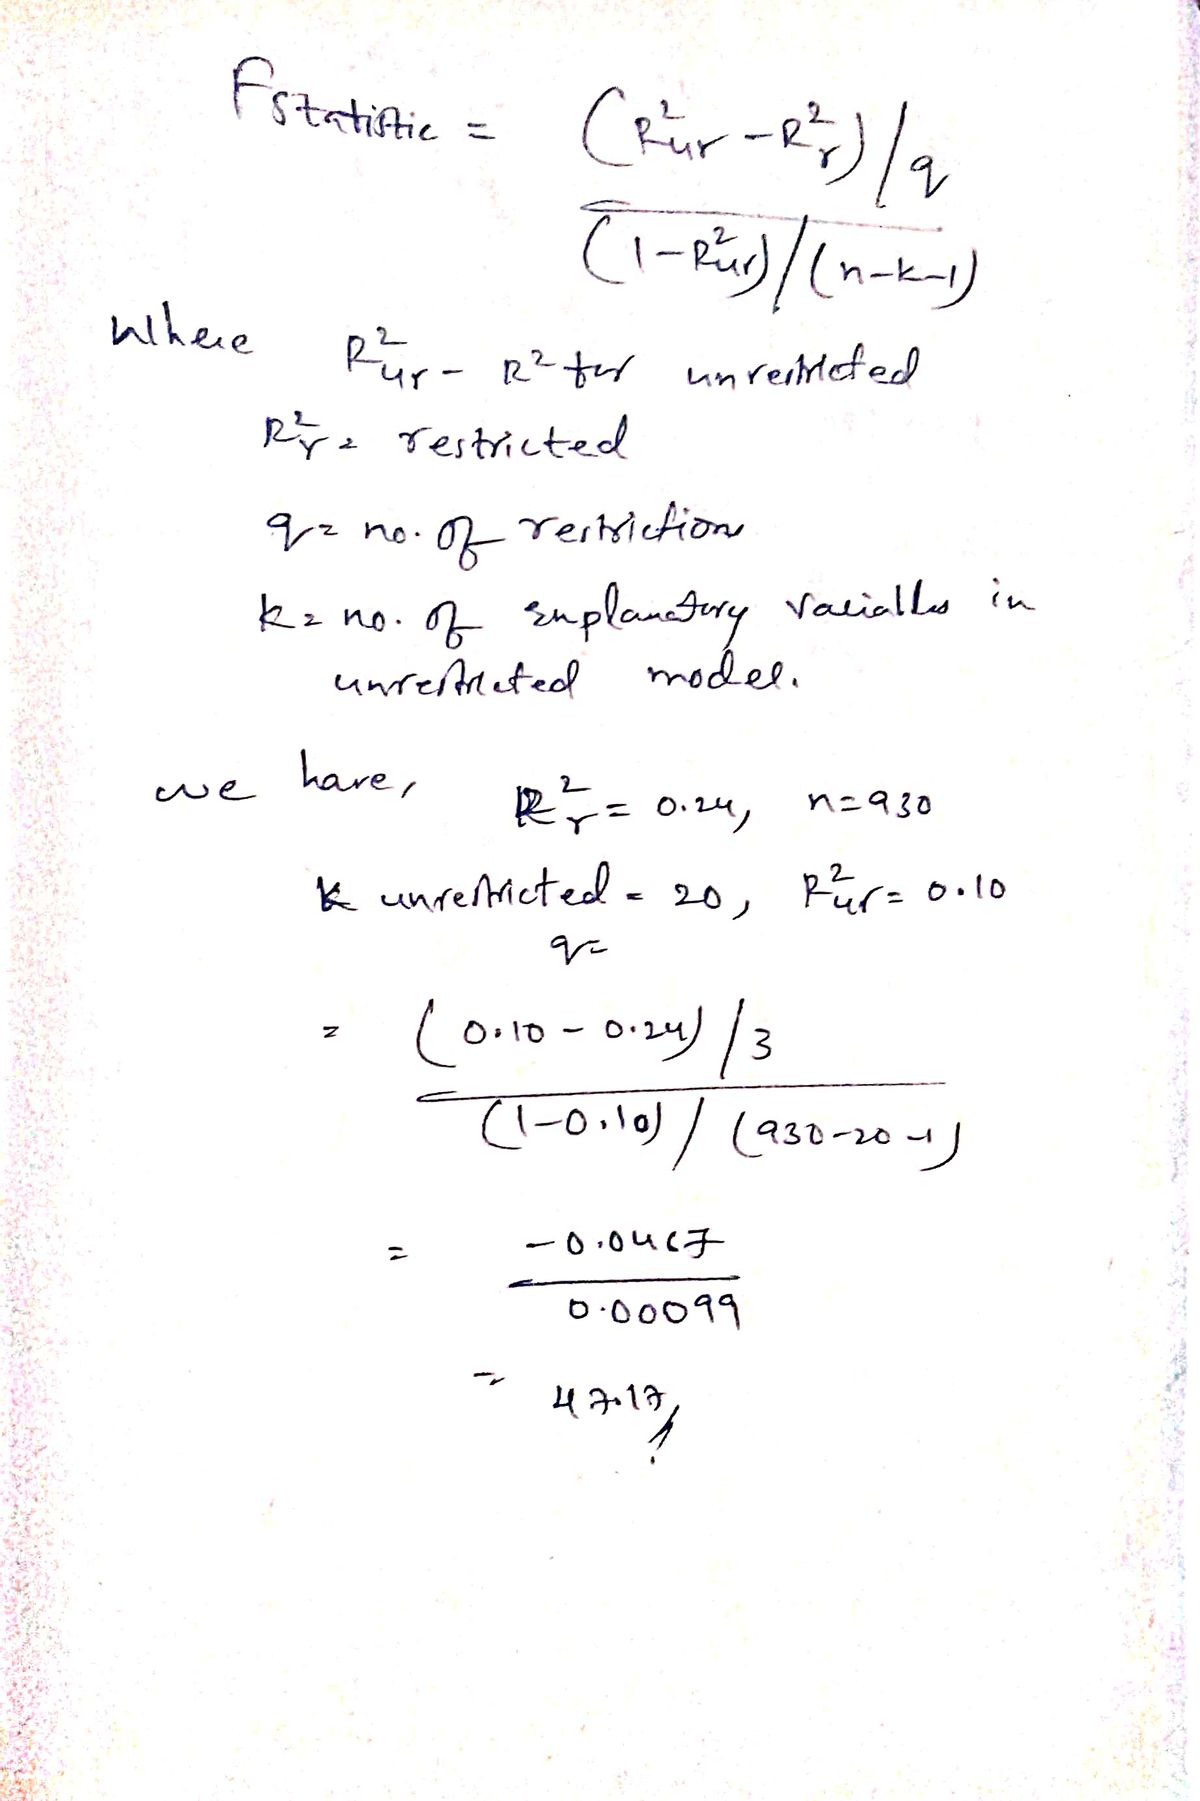 Fstatistic = (R²ur - R²r)/q
(1-R²ur)/(n-k-1)
Where R²ur - R² for unrestricted
R²r = restricted
q = no. of restrictions
k = no. of explanatory variables in
unrestricted model.
we have, R²r = 0.24, n=930
k unrestricted = 20, R²ur = 0.10
q=
= (0.10 - 0.24)/3
(1-0.10)/(930-20-1)
= -0.0467
0.00099
= 47.17